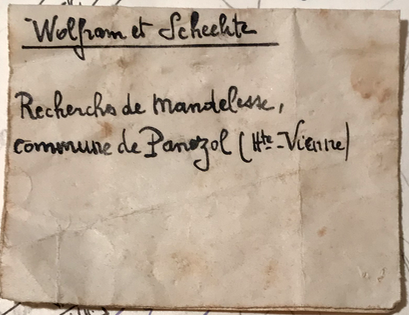 Wolfram et Scheelite
Recherches de Mandelesse,
commune de Panazol (Hte-Vienne)